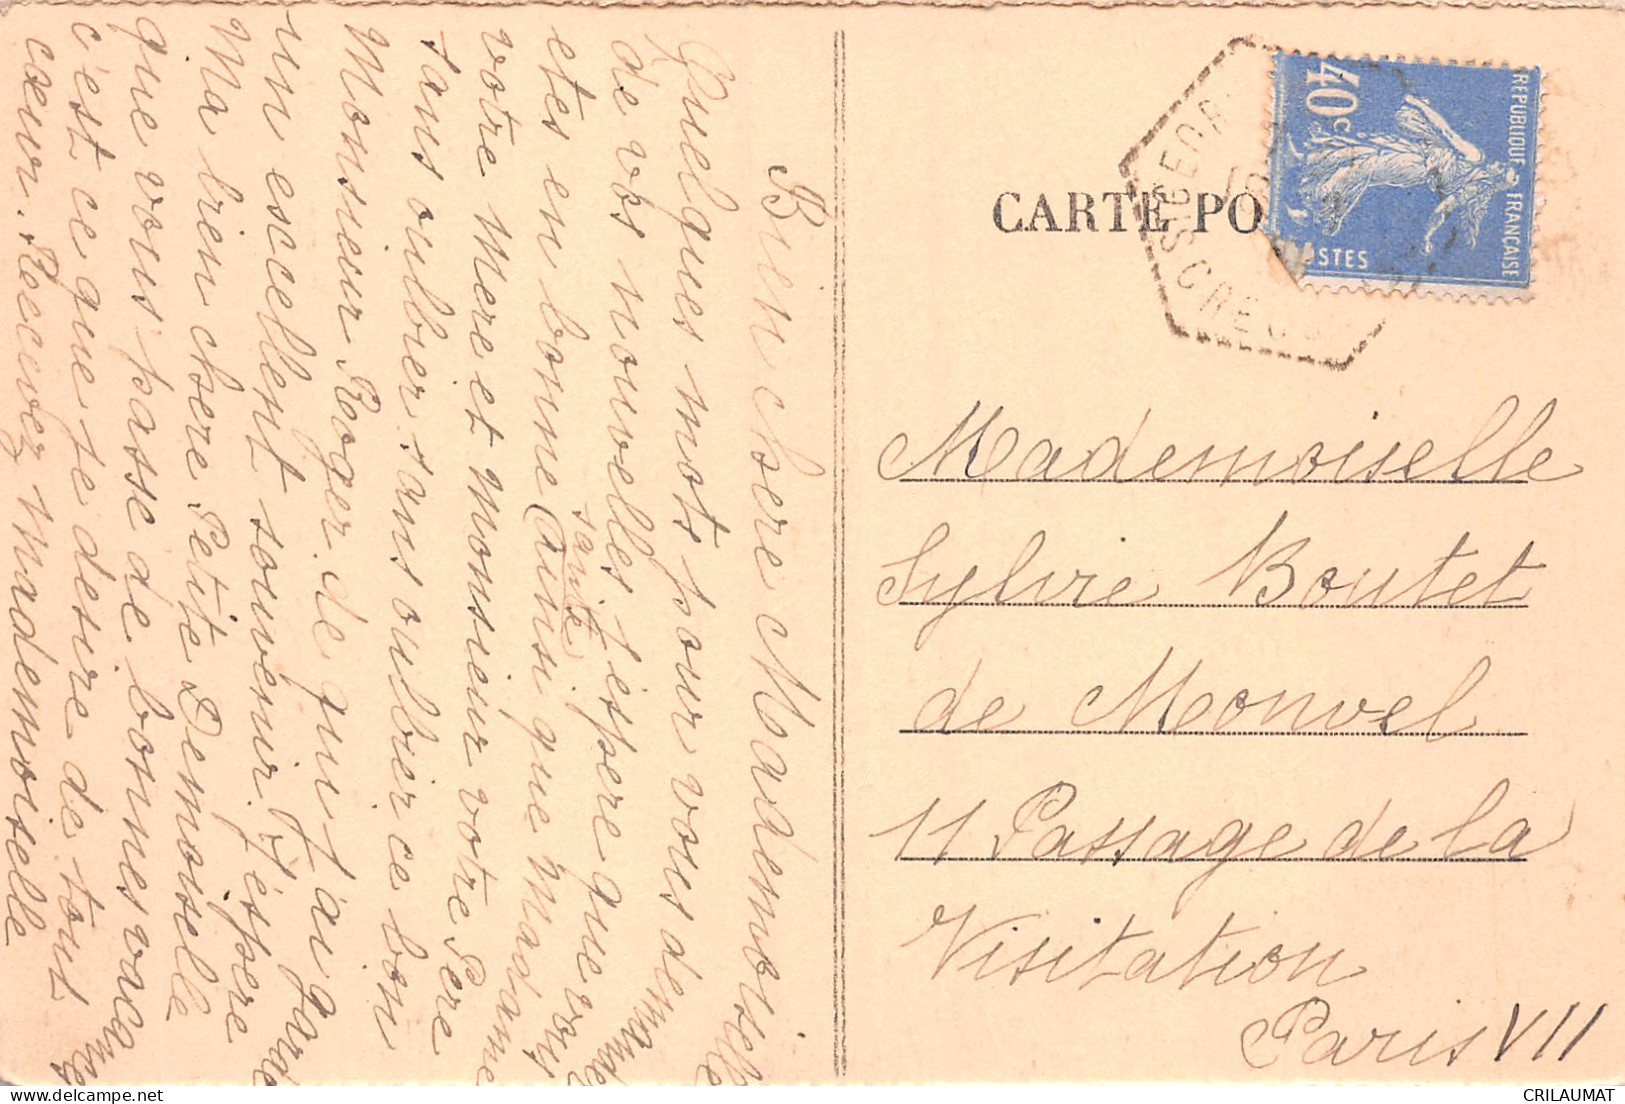 Bien chere Mademoiselle
Quelques mots pour vous demander
de vos nouvelles j'espere que vous
etes en bonne santé Ainsi que Madame
votre Mere et Monsieur votre Pere
sans oulbier sans oulbier ce bon
Monsieur Roger de qui j'ai garde
un escellent souvenir. J'espere
Ma bien chere Petite Demoiselle
que vous passe de bonnes vacances
c'est ce que je desire de tous
cœur. Recevez Mademoiselle
CARTE PO
REPUBLIQUE FRANÇAISE
40c
POSTES
ST GEOR
CREUSE
Mademoiselle
Sylvie Boutet
de Monvel
11 Passage de la
Visitation
Paris VII
CRILAUMAT